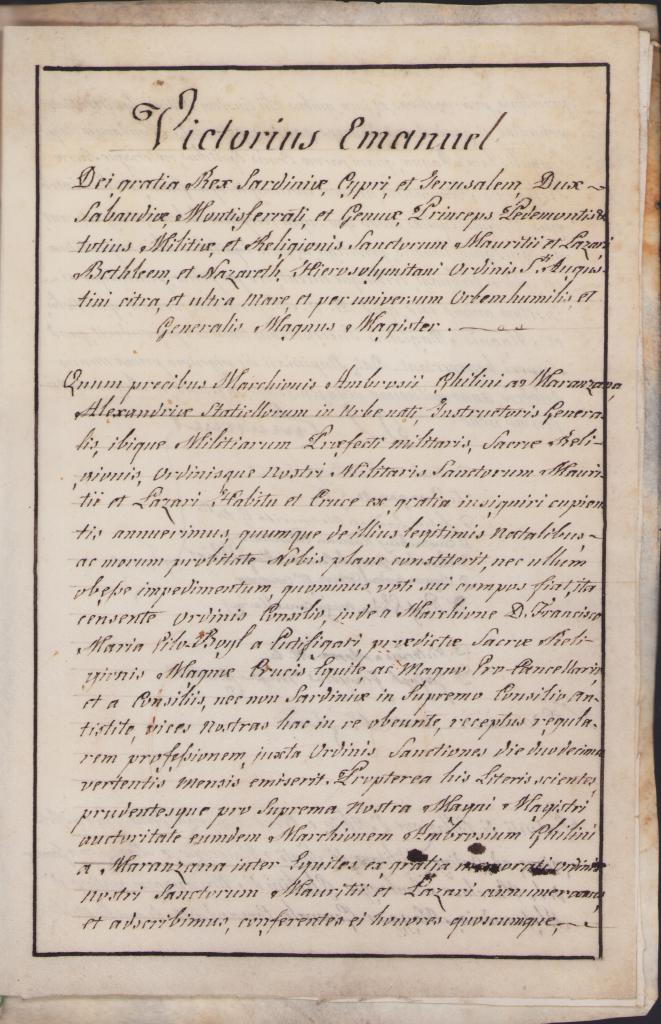 Victorius Emanuel
Dei gratia Rex Sardiniæ, Cypri, et Jerusalem, Dux
Sabaudiæ, Montisferrati, et Genuæ, Princeps Pedemontis &
totius Militiæ, et Religionis Sanctorum Mauritii et Lazari
Bethleem, et Nazareth, Hierosolymitani Ordinis S.ti Augus-
tini citra, et ultra Mare, et per universum Orbem humilis, et
Generalis Magnus Magister.
Quum precibus Marchionis Ambrosii Ghilini a Maranzana,
Alexandriæ Statiellorum in Urbe nati, Instructoris Genera-
lis, ibique Militiarum Præfecti militaris, Sacræ Reli-
gionis, Ordinisque Nostri Militaris Sanctorum Mauri-
tii et Lazari Habitu et Cruce ex gratia insigniri cupien-
tis annuerimus, quumque de illius legitimis Natalibus
ac morum probitate Nobis plane constiterit, nec ullum
obesse impedimentum, quominus voti sui compos fiat, ita
censente Ordinis Consilio, inde a Marchione D. Francisco
Maria Pilo Boyl a Putifigari, prædictæ Sacræ Reli-
gionis Magnæ Crucis Equite, ac Magno Pro-Cancellario,
et a Consiliis, nec non Sardiniæ in Supremo Consilio An-
tistite, vices Nostras hac in re obeunte, receptus regula-
rem professionem, juxta Ordinis Sanctiones die duodecima
vertentis mensis emiserit. Propterea his Literis scientes,
prudentesque pro Suprema Nostra Magni Magistri
auctoritate eumdem Marchionem Ambrosium Ghilini
a Maranzana inter Equites ex gratia memorati Ordinis
Nostri Sanctorum Mauritii et Lazari annumeramus
et adscribimus, conferentes ei honores quoscumque,